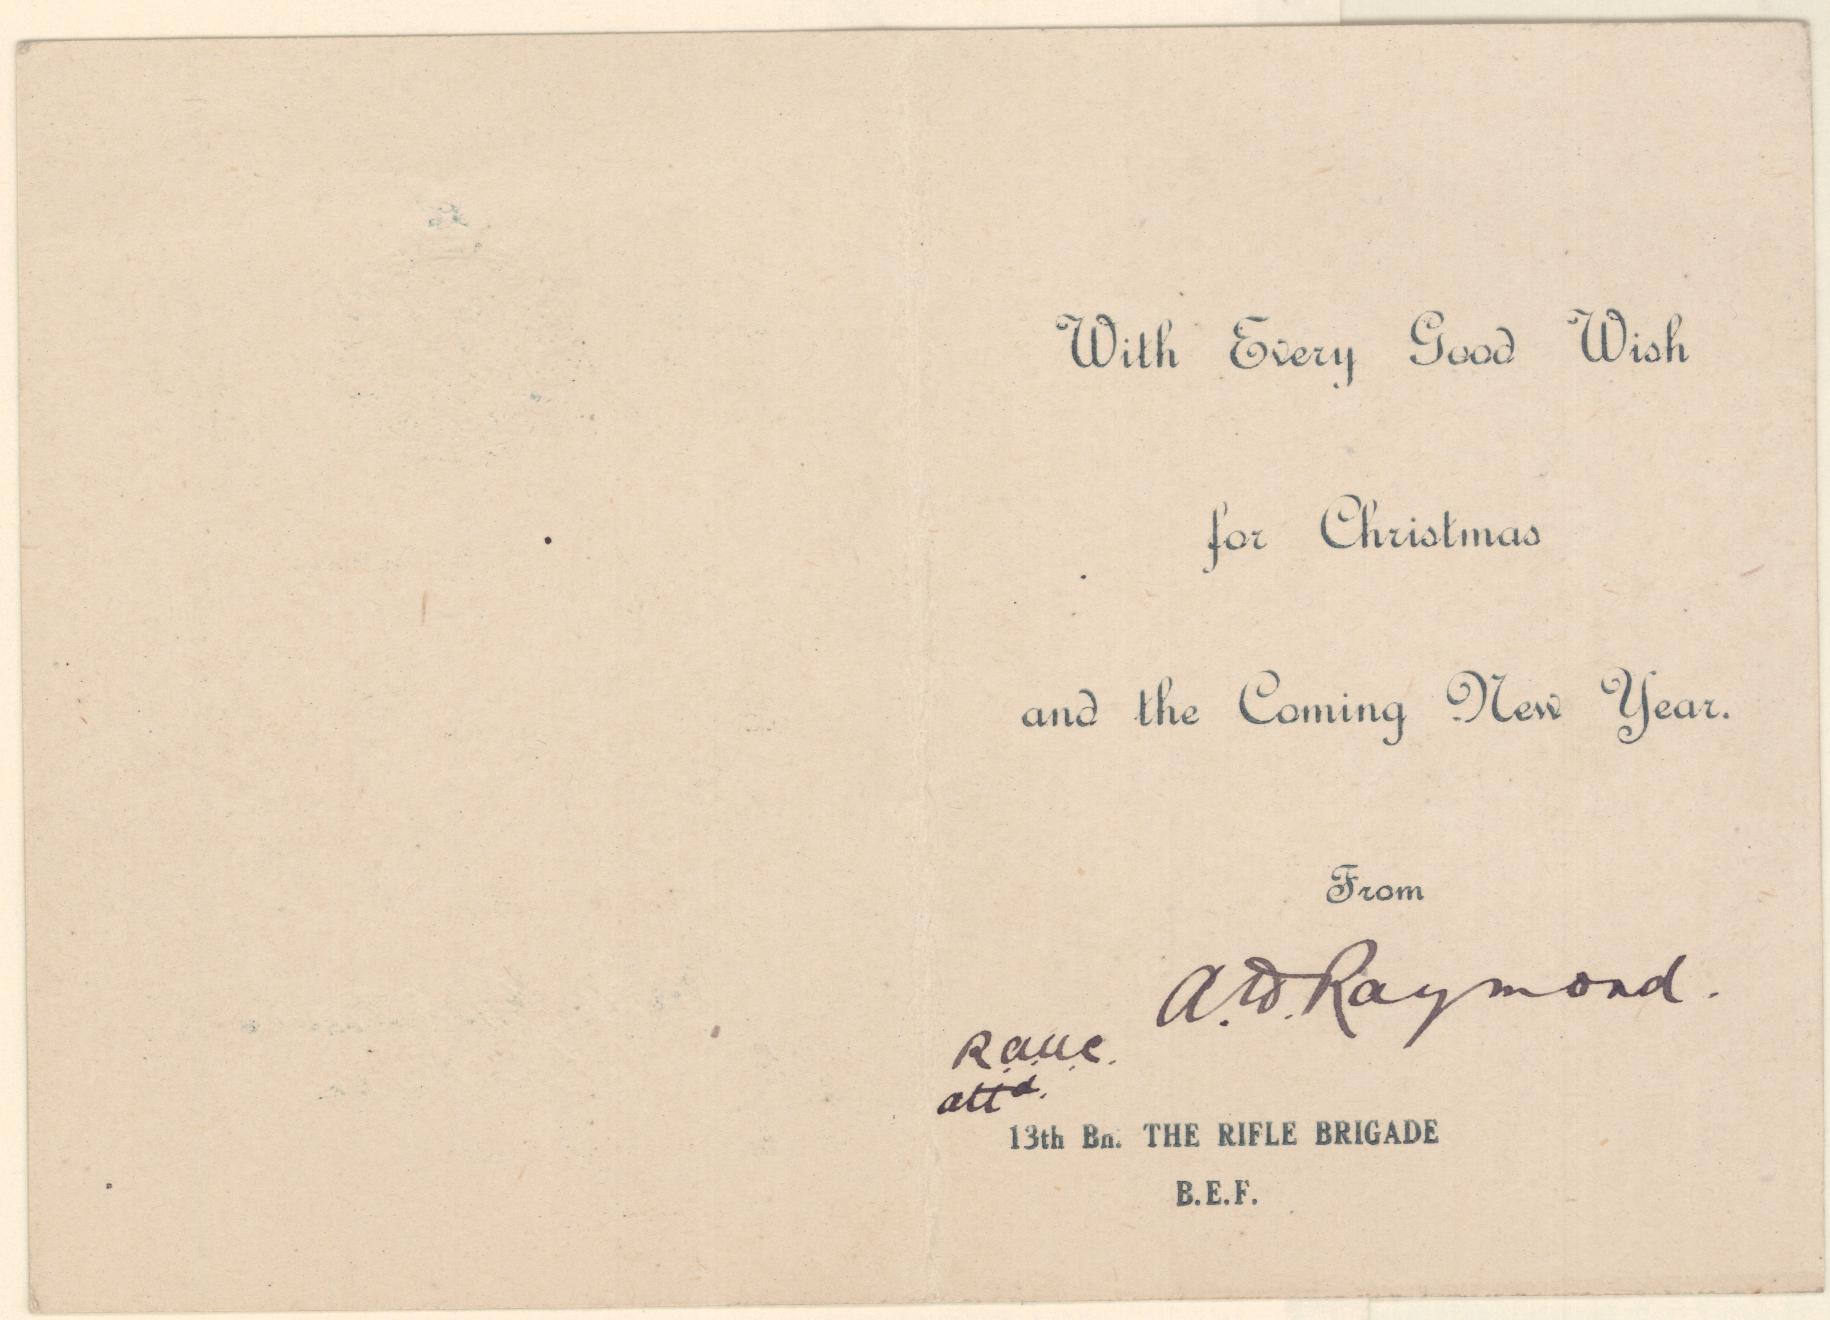 With Every Good Wish
for Christmas
and the Coming New Year.
From
A.W. Raymond.
R.A.M.C.
attd.
13th Bn. THE RIFLE BRIGADE
B.E.F.